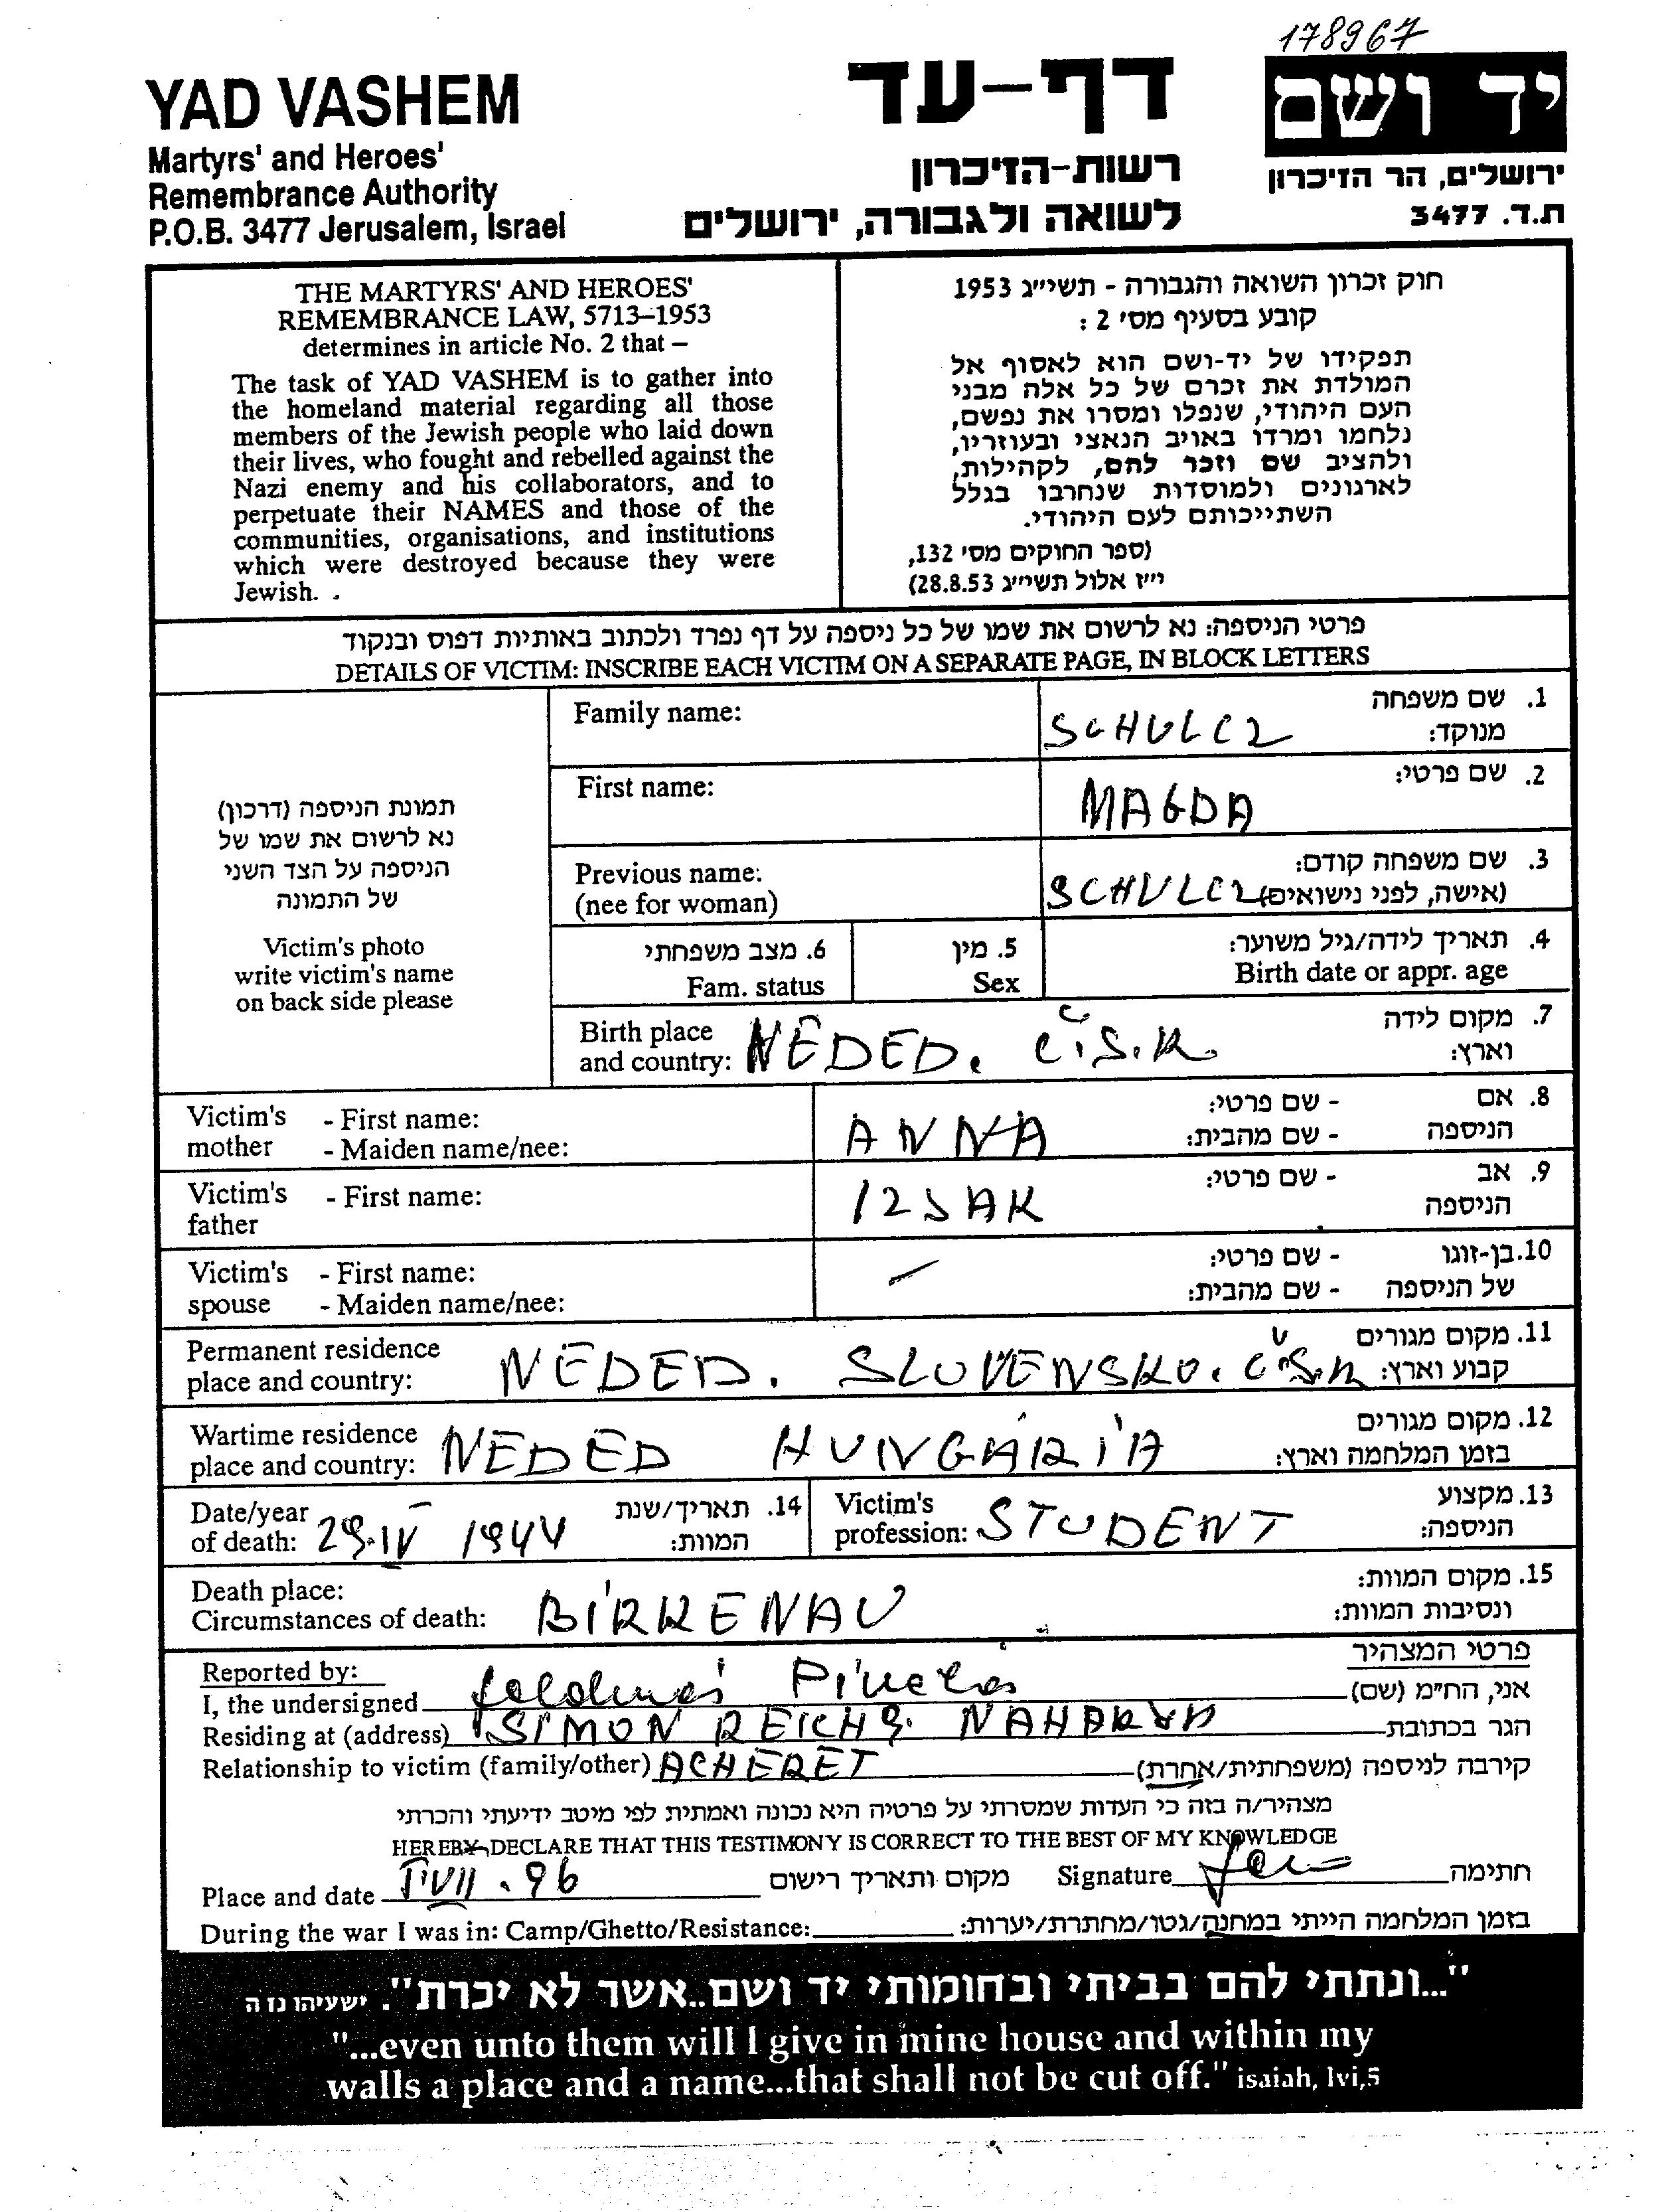 178967
YAD VASHEM
Martyrs' and Heroes'
Remembrance Authority
P.O.B. 3477 Jerusalem, Israel
דף-עד
רשות-הזיכרון
לשואה ולגבורה, ירושלים
יד ושם
ירושלים, הר הזיכרון
ת.ד. 3477
THE MARTYRS' AND HEROES'
REMEMBRANCE LAW, 5713–1953
determines in article No. 2 that –
The task of YAD VASHEM is to gather into
the homeland material regarding all those
members of the Jewish people who laid down
their lives, who fought and rebelled against the
Nazi enemy and his collaborators, and to
perpetuate their NAMES and those of the
communities, organisations, and institutions
which were destroyed because they were
Jewish.
חוק זכרון השואה והגבורה - תשי״ג 1953
קובע בסעיף מס׳ 2 :
תפקידו של יד-ושם הוא לאסוף אל
המולדת את זכרם של כל אלה מבני
העם היהודי, שנפלו ומסרו את נפשם,
נלחמו ומרדו באויב הנאצי ובעוזריו,
ולהציב שם וזכר להם, לקהילות,
לארגונים ולמוסדות שנחרבו בגלל
השתייכותם לעם היהודי.
(ספר החוקים מס׳ 132,
י״ז אלול תשי״ג 28.8.53)
פרטי הניספה: נא לרשום את שמו של כל ניספה על דף נפרד ולכתוב באותיות דפוס ובנקוד
DETAILS OF VICTIM: INSCRIBE EACH VICTIM ON A SEPARATE PAGE, IN BLOCK LETTERS
תמונת הניספה (דרכון)
נא לרשום את שמו של
הניספה על הצד השני
של התמונה
Victim's photo
write victim's name
on back side please
Family name: SCHULCZ 1. שם משפחה
מנוקד:
First name: MAGDA 2. שם פרטי:
Previous name: 3. שם משפחה קודם:
(nee for woman) SCHULCZ (אישה, לפני נישואים)
6. מצב משפחתי 5. מין 4. תאריך לידה/גיל משוער:
Fam. status Sex Birth date or appr. age
Birth place NEDED. Č.S.R. 7. מקום לידה
and country: וארץ:
Victim's - First name: - שם פרטי: 8. אם
mother - Maiden name/nee: ANNA - שם מהבית: הניספה
Victim's - First name: IZSAK - שם פרטי: 9. אב
father הניספה
Victim's - First name: - שם פרטי: 10. בן-זוגו
spouse - Maiden name/nee: - שם מהבית: של הניספה
Permanent residence 11. מקום מגורים
place and country: NEDED. SLOVENSKO. Č.S.R קבוע וארץ:
Wartime residence 12. מקום מגורים
place and country: NEDED HUNGÁRIA בזמן המלחמה וארץ:
Date/year 14. תאריך/שנת
of death: 29.IV 1944 המוות:
Victim's 13. מקצוע
profession: STUDENT הניספה:
Death place: 15. מקום המוות:
Circumstances of death: BIRKENAU ונסיבות המוות:
Reported by: פרטי המצהיר
I, the undersigned אני, הח״מ (שם)
Residing at (address) SIMON REICH 9. NAHARYA הגר בכתובת
Relationship to victim (family/other) ACHERET קירבה לניספה (משפחתית/אחרת)
מצהיר/ה בזה כי העדות שמסרתי על פרטיה היא נכונה ואמתית לפי מיטב ידיעתי והכרתי
HEREBY DECLARE THAT THIS TESTIMONY IS CORRECT TO THE BEST OF MY KNOWLEDGE
Place and date VII . 96 מקום ותאריך רישום Signature חתימה
During the war I was in: Camp/Ghetto/Resistance: בזמן המלחמה הייתי במחנה/גטו/מחתרת/יערות:
"...ונתתי להם בביתי ובחומותי יד ושם..אשר לא יכרת". ישעיהו נו ה
"...even unto them will I give in mine house and within my
walls a place and a name...that shall not be cut off." isaiah, lvi,5